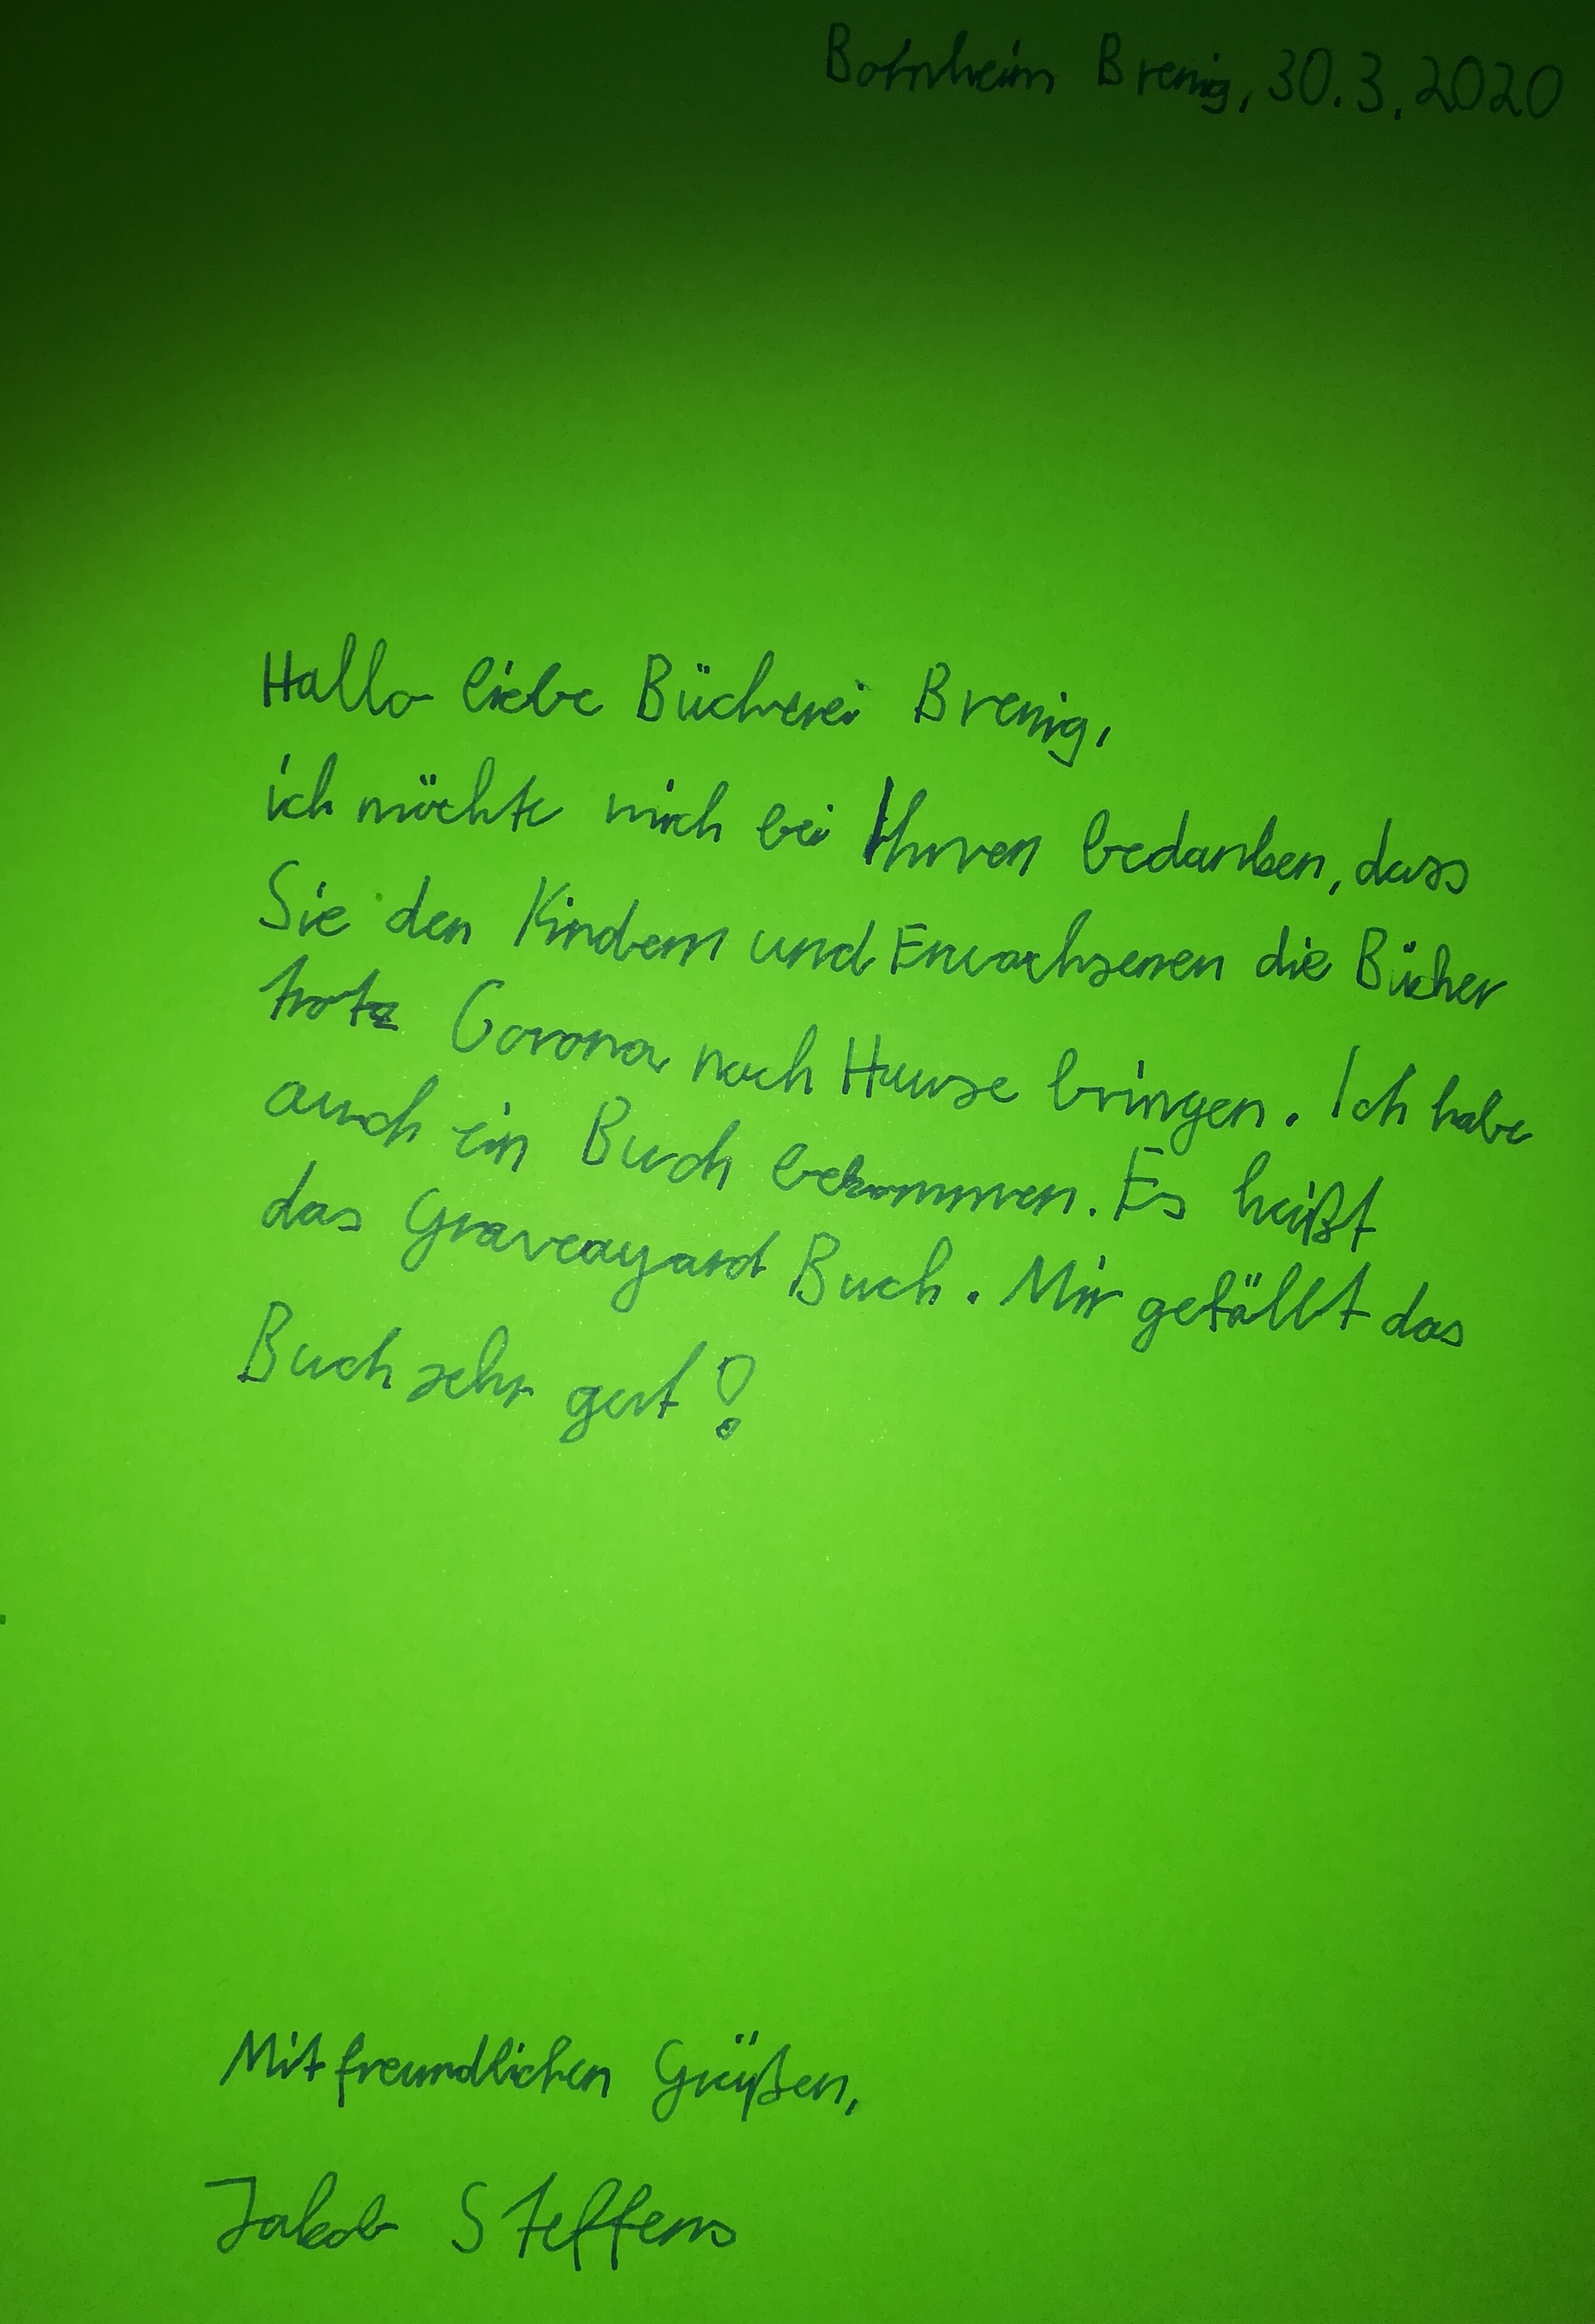 Bornheim Brenig, 30.3.2020
Hallo liebe Bücherei Brenig,
ich möchte mich bei Ihnen bedanken, dass
Sie den Kindern und Erwachsenen die Bücher
trotz Corona nach Hause bringen. Ich habe
auch ein Buch bekommen. Es heißt
das Graveayard Buch. Mir gefällt das
Buch sehr gut!
Mit freundlichen Grüßen,
Jakob Steffens